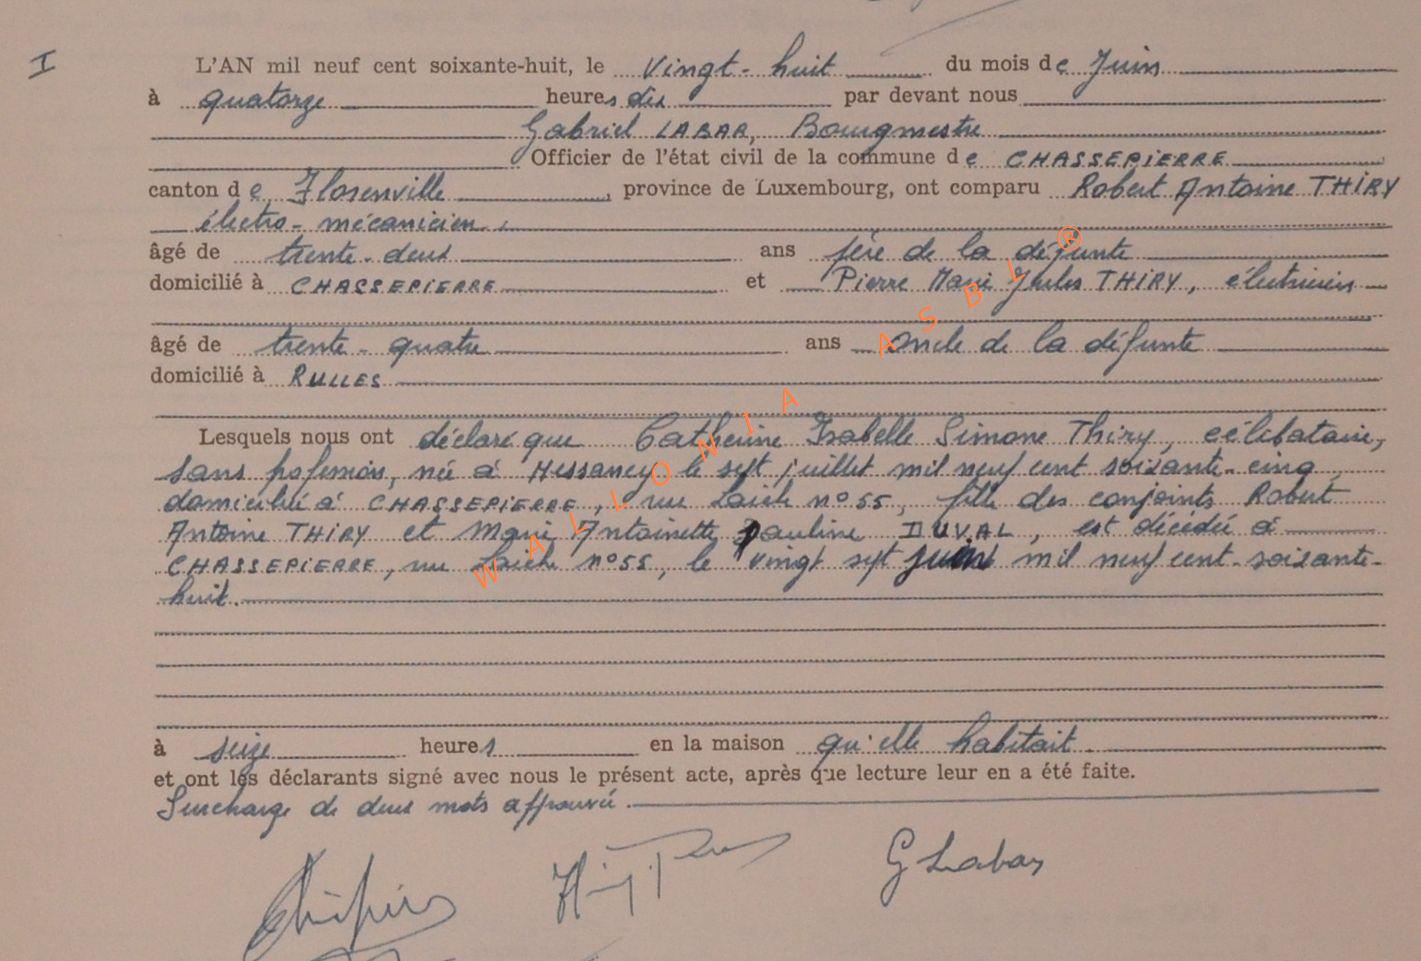 I
L'AN mil neuf cent soixante-huit, le vingt-huit du mois de Juin
à quatorze heures dix par devant nous
Gabriel LABAR, Bourgmestre
Officier de l'état civil de la commune de CHASSEPIERRE
canton de Florenville, province de Luxembourg, ont comparu Robert Antoine THIRY
électro-mécanicien,
âgé de trente-deux ans père de la défunte
domicilié à CHASSEPIERRE et Pierre Marie Jules THIRY, électricien
âgé de trente-quatre ans oncle de la défunte
domicilié à RULLES
Lesquels nous ont déclaré que Catherine Isabelle Simone Thiry, célibataire,
sans profession, née à Messancy le sept juillet mil neuf cent soixante-cinq,
domiciliée à CHASSEPIERRE, rue Laiche n°55, fille des conjoints Robert
Antoine THIRY et Marie Antoinette Pauline DUVAL, est décédée à
CHASSEPIERRE, rue Laiche n°55, le vingt sept juin mil neuf cent-soixante-
huit.
à seize heures en la maison qu'elle habitait.
et ont les déclarants signé avec nous le présent acte, après que lecture leur en a été faite.
Surcharge de deux mots approuvée.
G Labar
WALLONIA ASBL ®